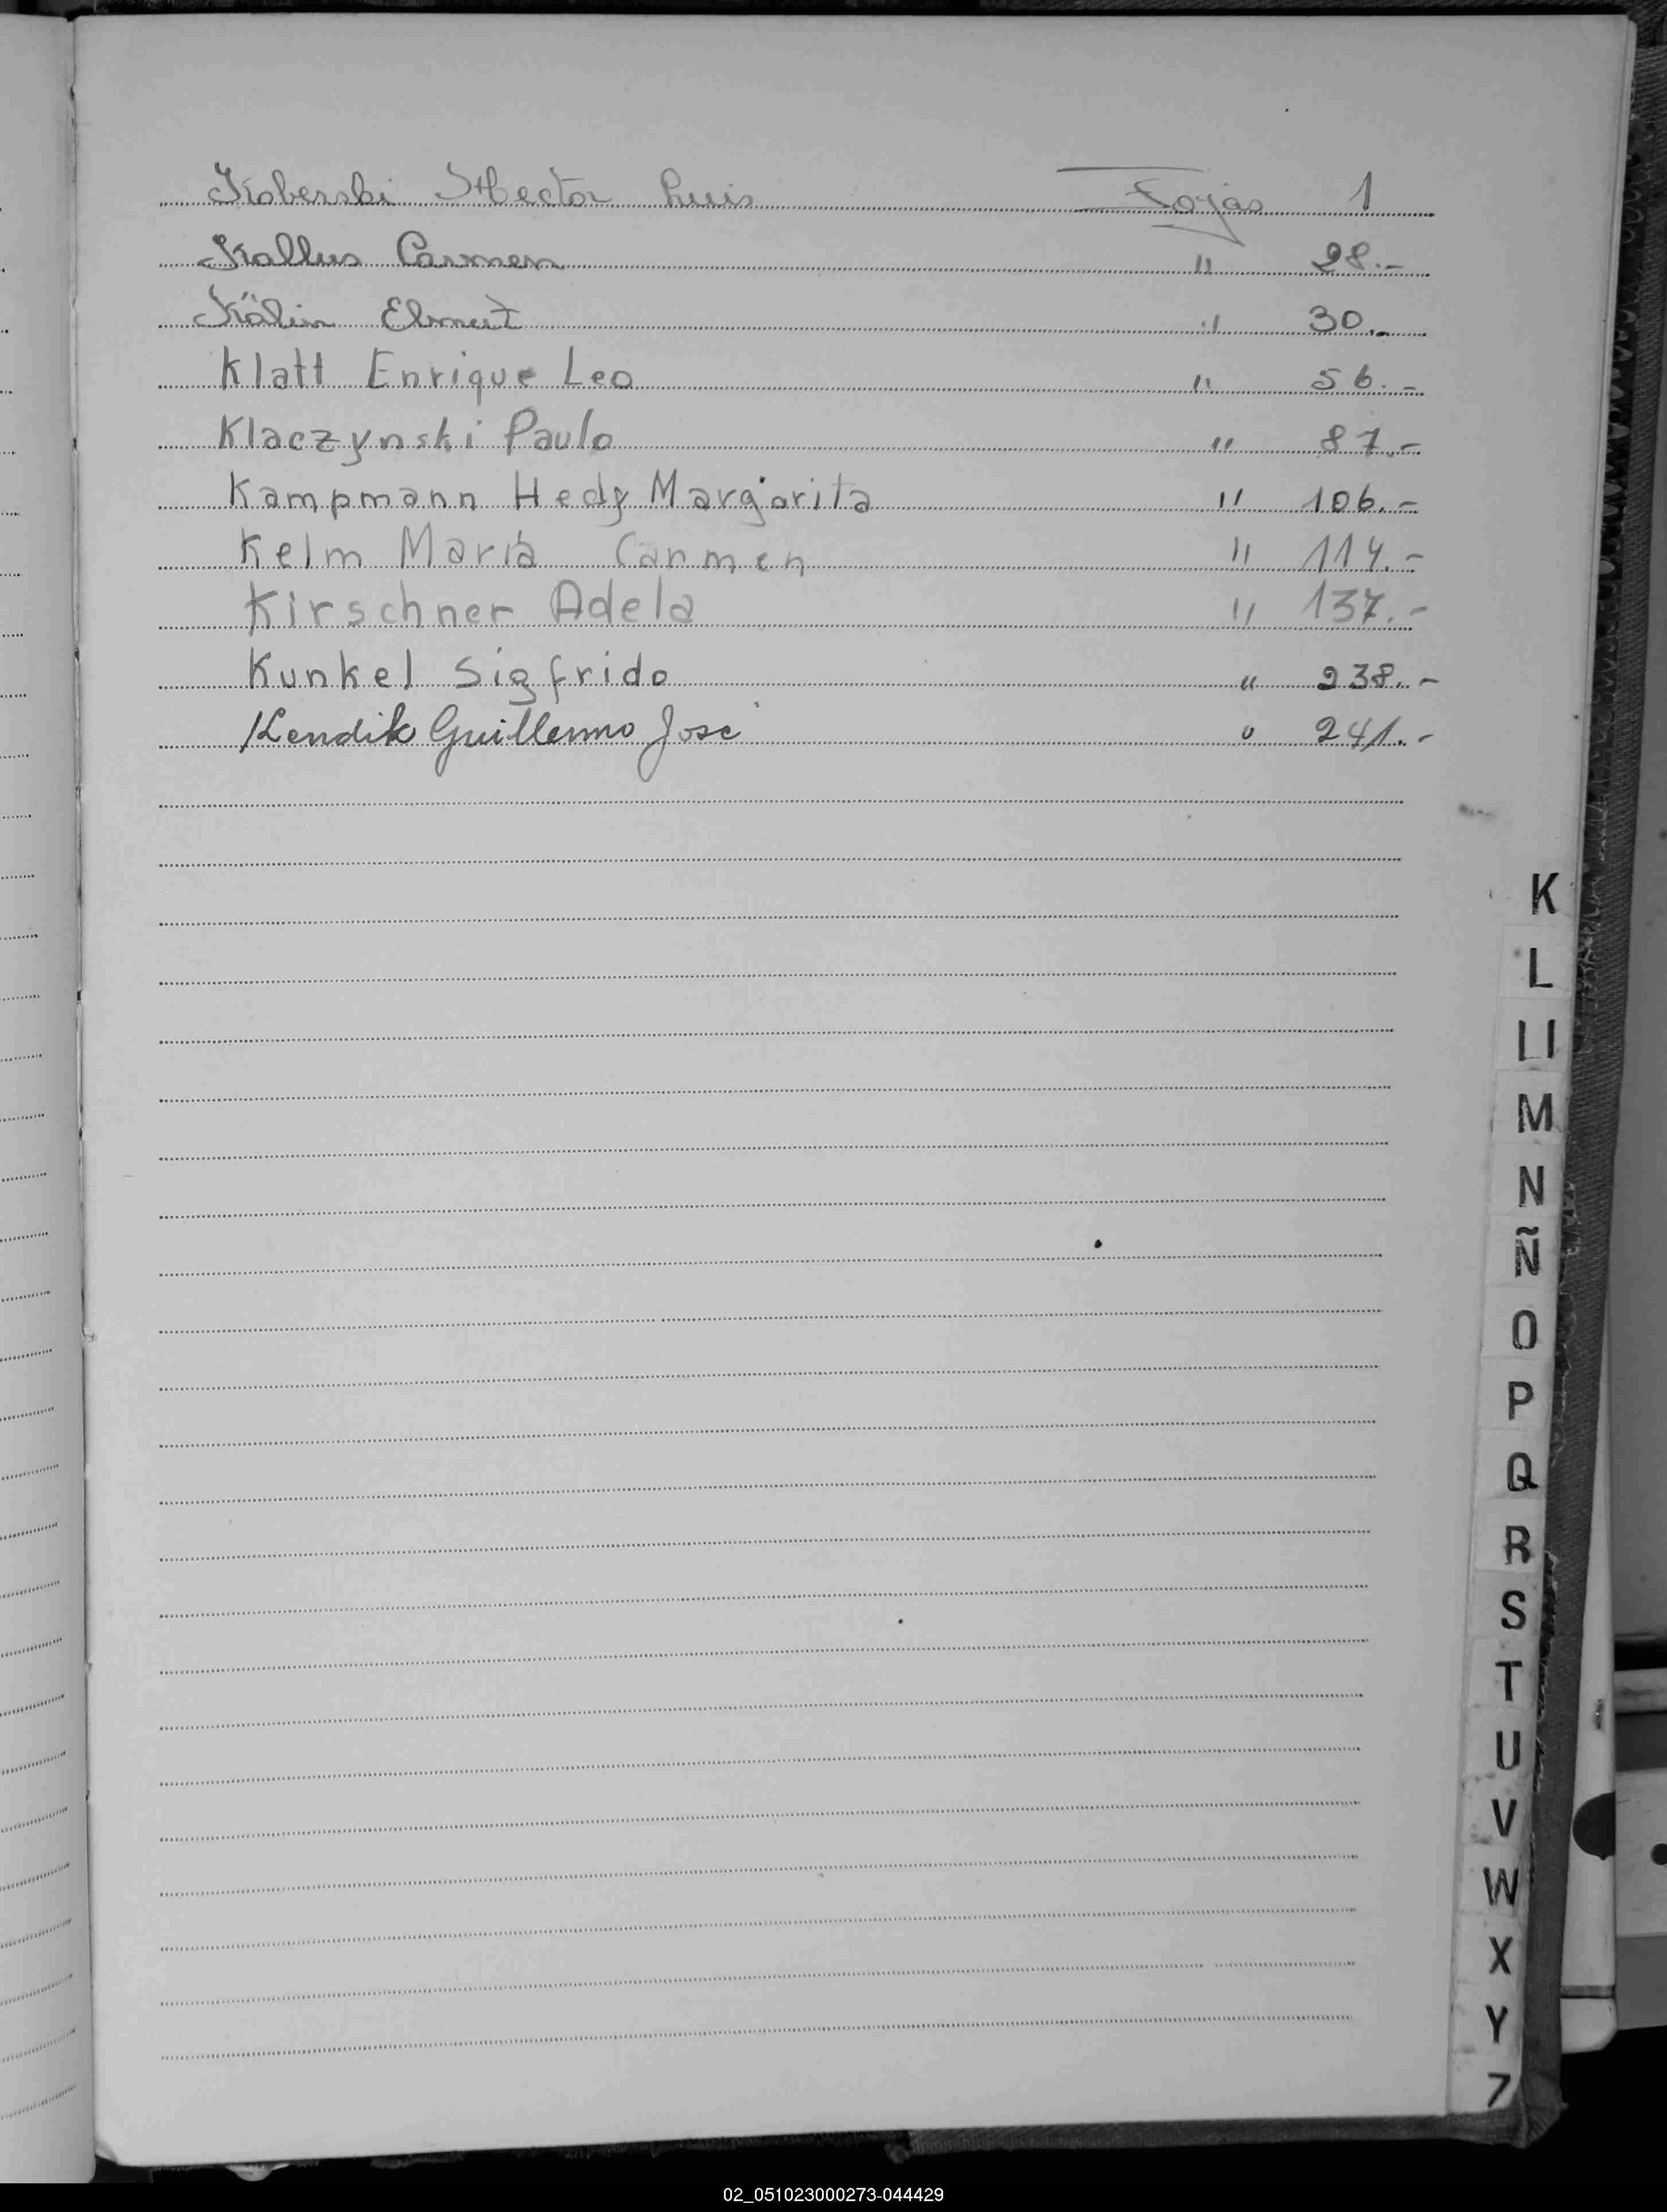 Koberski Hector Luis Fojas 1
Kallus Carmen " 28.-
Kälin Elmut " 30.-
Klatt Enrique Leo " 56.-
Klaczynski Paulo " 87.-
Kampmann Hedy Margarita " 106.-
Kelm Maria Carmen " 114.-
Kirschner Adela " 137.-
Kunkel Sigfrido " 238.-
Kendik Guillermo José " 241.-
K
L
Ll
M
N
Ñ
O
P
Q
R
S
T
U
V
W
X
Y
Z
02_051023000273-044429